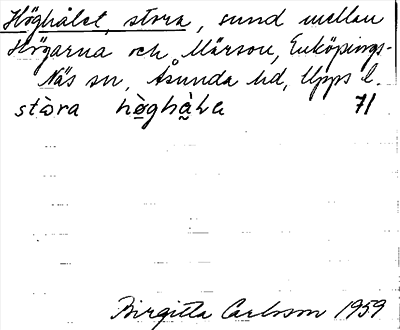 Höghålet, stora, sund mellan
Högarna och Märsön, Enköpings-
Näs sn, Åsunda hd, Upps l.
stòra hò̤ghà̤ła 71
Birgitta Carlsson 1959